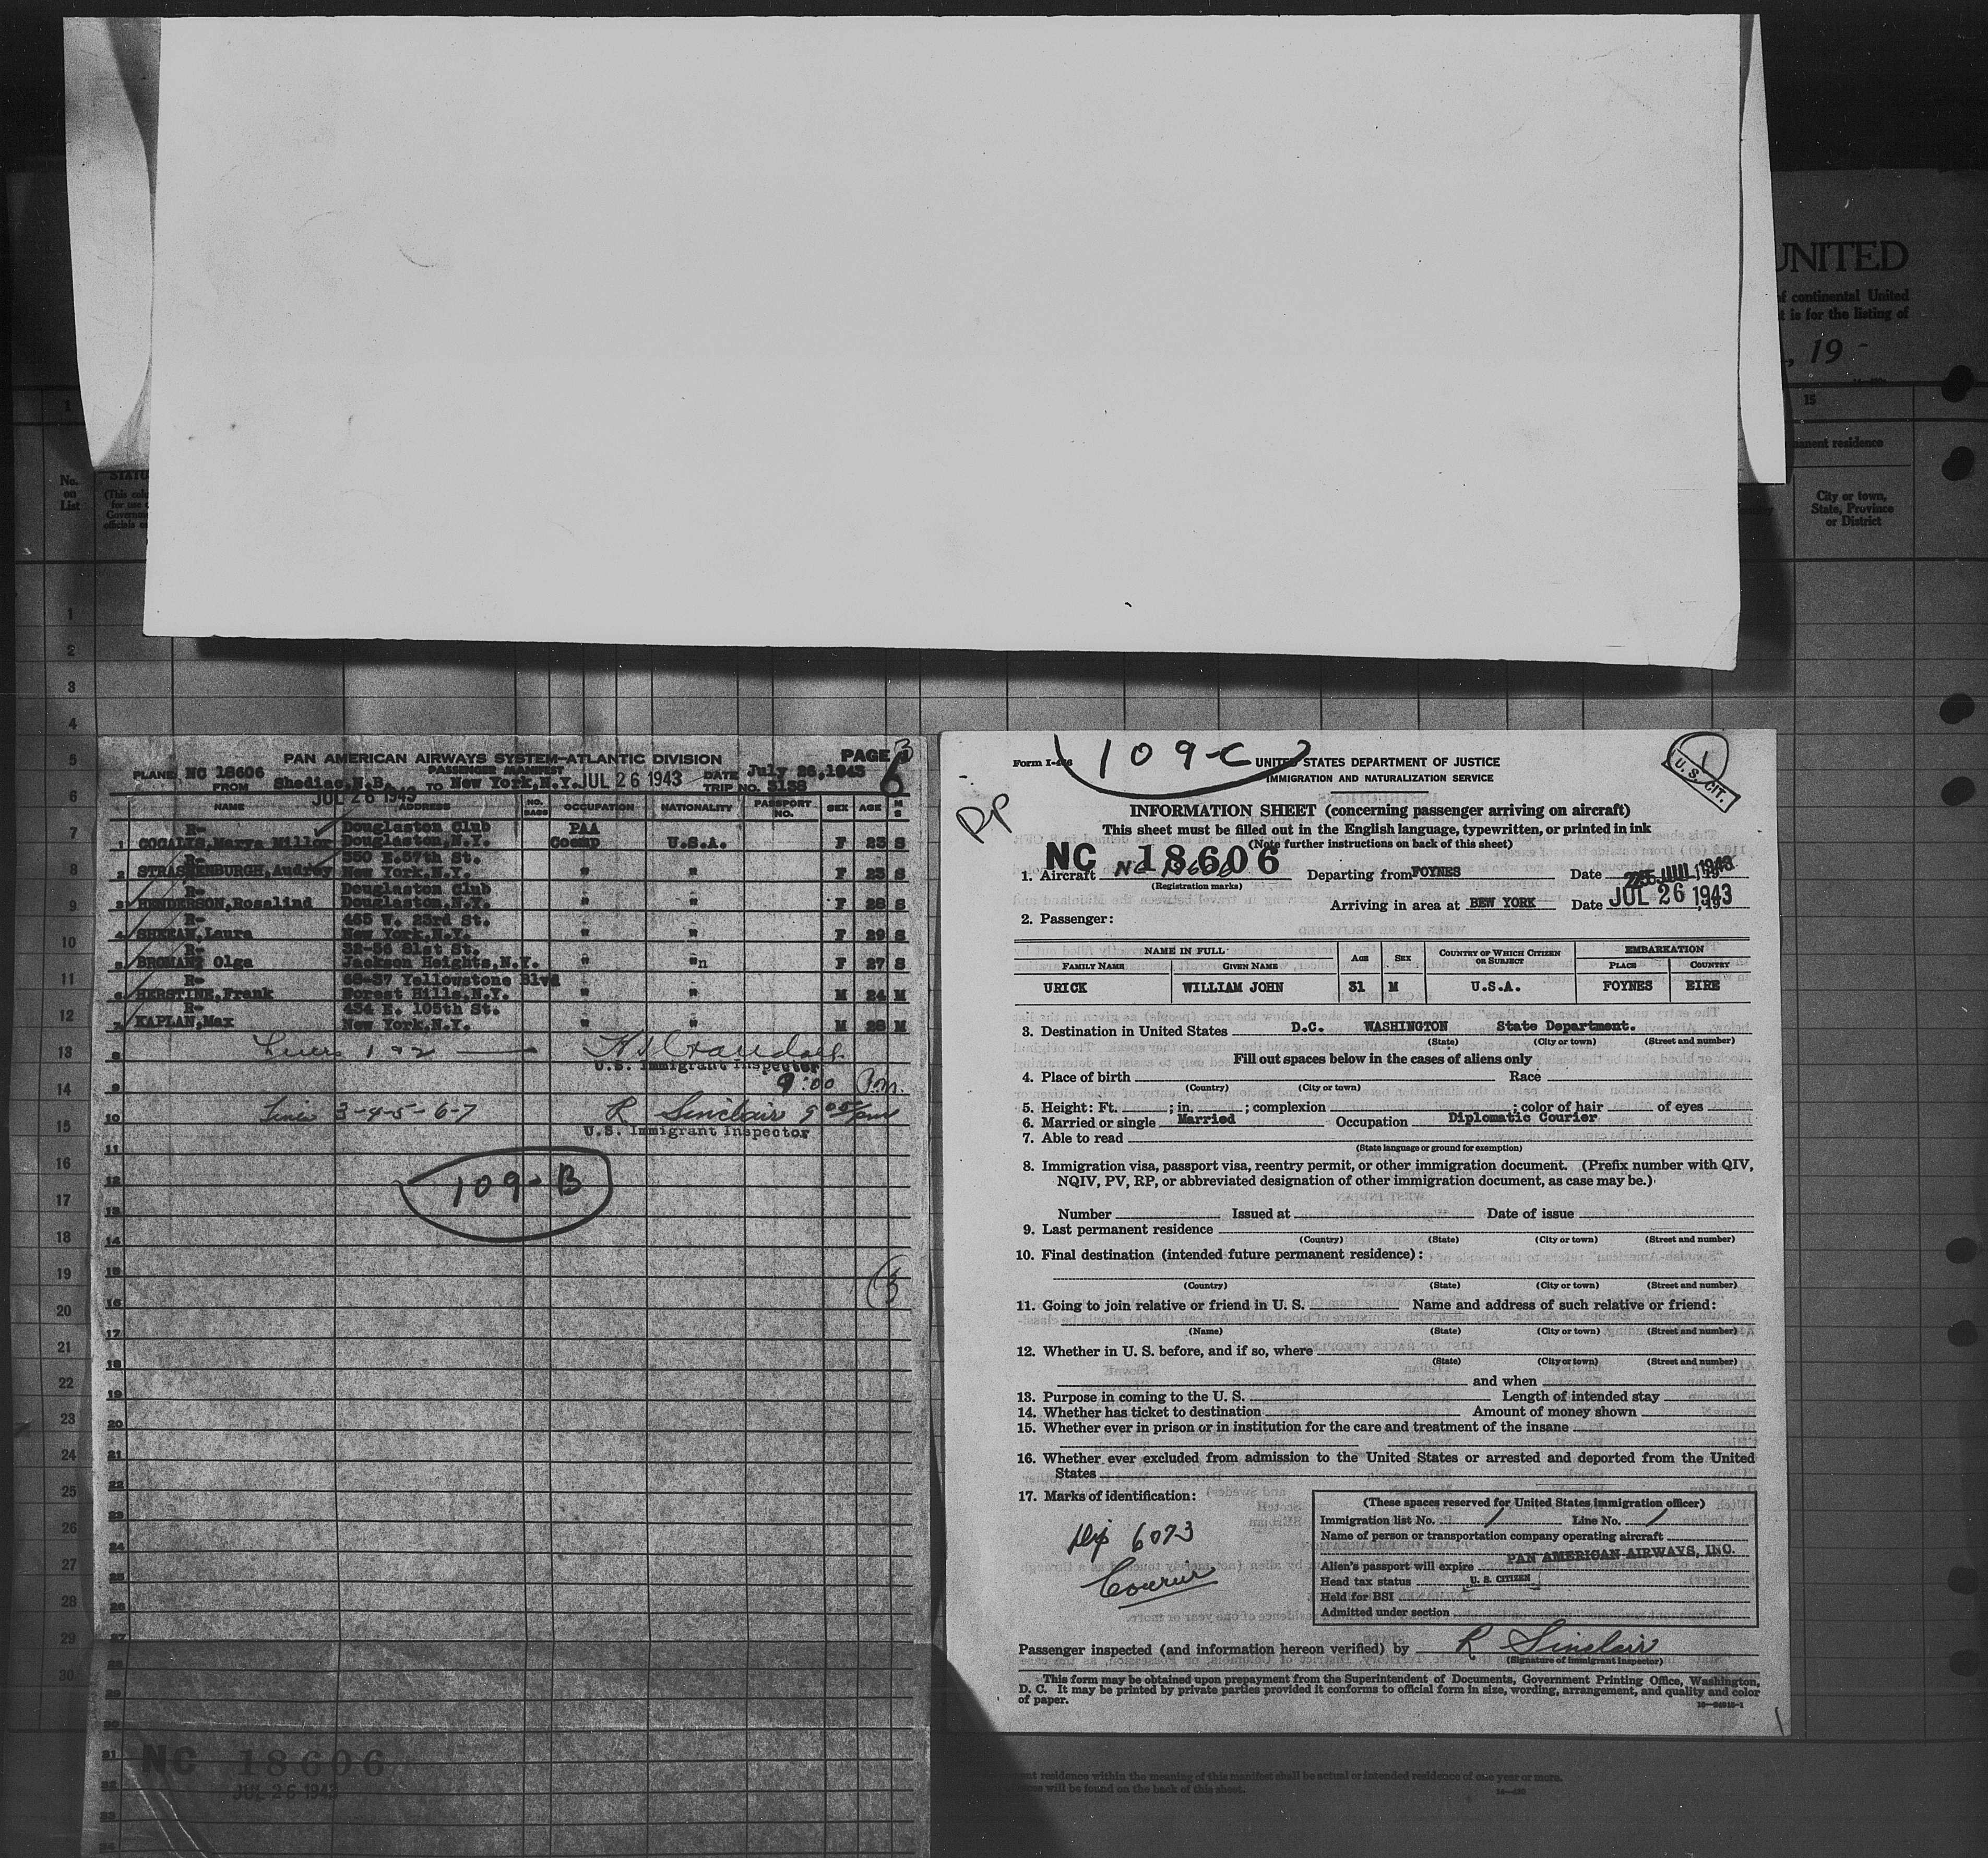 UNITED
of continental United
t is for the listing of
, 19 -
1
15
anent residence
No.
on
List
STATU
(This colu
for use o
Governme
officials o
City or town,
State, Province
or District
1
2
3
4
5
6
7
8
9
10
11
12
13
14
15
16
17
18
19
20
21
22
23
24
25
26
27
28
29
30
PAN AMERICAN AIRWAYS SYSTEM—ATLANTIC DIVISION
PAGE 3
6
PASSENGER MANIFEST
PLANE NC 18606 DATE July 26, 1943
FROM Shediac, N.B. TO New York, N.Y. JUL 26 1943 TRIP NO. 3138
JUL 26 1943
NAME ADDRESS NO. BAGS OCCUPATION NATIONALITY PASSPORT NO. SEX AGE M S
R- Douglaston Club PAA
1 GOGALYS, Marya Millor Douglaston, N.Y. Coemp U.S.A. F 23 S
R- 350 E. 57th St.
2 STRASSENBURGH, Audrey New York, N.Y. " " F 23 S
R- Douglaston Club
3 HENDERSON, Rosalind Douglaston, N.Y. " " F 28 S
R- 465 W. 23rd St.
4 SHEEAN, Laura New York, N.Y. " " F 29 S
R- 32-56 81st St.
5 BROMANT Olga Jackson Heights, N.Y. " "n F 27 S
R- 68-37 Yellowstone Blvd
6 HERSTINE, Frank Forest Hills, N.Y. " " M 24 M
R- 434 E. 105th St.
7 KAPLAN, Max New York, N.Y. " " M 28 M
8 Lines 1 & 2 —
U.S. Immigrant Inspector
9 9:00 Pm.
10 Lines 3-4-5-6-7 R Sinclair 9 05 pm
U.S. Immigrant Inspector
11
12 109-B
13
14
15
16
17
18
19
20
21
22
23
24
25
26
27
28
29
30
31
32
33
NC 18606
JUL 26 1943
109-C
RP
1
U.S. CIT.
UNITED STATES DEPARTMENT OF JUSTICE
IMMIGRATION AND NATURALIZATION SERVICE
INFORMATION SHEET (concerning passenger arriving on aircraft)
This sheet must be filled out in the English language, typewritten, or printed in ink
(Note further instructions on back of this sheet)
NC 18606
1. Aircraft NC 18606 Departing from FOYNES Date 25 JUL 1943
(Registration marks)
Arriving in area at BEW YORK Date JUL 26 1943
2. Passenger:
NAME IN FULL
FAMILY NAME GIVEN NAME AGE SEX COUNTRY OF WHICH CITIZEN OR SUBJECT EMBARKATION PLACE COUNTRY
URICK WILLIAM JOHN 31 M U.S.A. FOYNES EIRE
3. Destination in United States D.C. WASHINGTON State Department.
(State) (City or town) (Street and number)
Fill out spaces below in the cases of aliens only
4. Place of birth Race
(Country) (City or town)
5. Height: Ft. ; in. ; complexion ; color of hair of eyes
6. Married or single Married Occupation Diplomatic Courier
7. Able to read
(State language or ground for exemption)
8. Immigration visa, passport visa, reentry permit, or other immigration document. (Prefix number with QIV,
NQIV, PV, RP, or abbreviated designation of other immigration document, as case may be.)
Number Issued at Date of issue
9. Last permanent residence
(Country) (State) (City or town) (Street and number)
10. Final destination (intended future permanent residence):
(Country) (State) (City or town) (Street and number)
11. Going to join relative or friend in U. S. Name and address of such relative or friend:
(Name) (State) (City or town) (Street and number)
12. Whether in U. S. before, and if so, where
(State) (City or town) (Street and number)
and when
13. Purpose in coming to the U. S. Length of intended stay
14. Whether has ticket to destination Amount of money shown
15. Whether ever in prison or in institution for the care and treatment of the insane
16. Whether ever excluded from admission to the United States or arrested and deported from the United
States
17. Marks of identification:
Dip 6073
Courier
(These spaces reserved for United States immigration officer)
Immigration list No. 1 Line No. 1
Name of person or transportation company operating aircraft
PAN AMERICAN AIRWAYS, INC.
Alien's passport will expire
Head tax status U. S. CITIZEN
Held for BSI
Admitted under section
Passenger inspected (and information hereon verified) by R Sinclair
(Signature of immigrant inspector)
This form may be obtained upon prepayment from the Superintendent of Documents, Government Printing Office, Washington,
D. C. It may be printed by private parties provided it conforms to official form in size, wording, arrangement, and quality and color
of paper.
nt residence within the meaning of this manifest shall be actual or intended residence of one year or more.
es will be found on the back of this sheet.